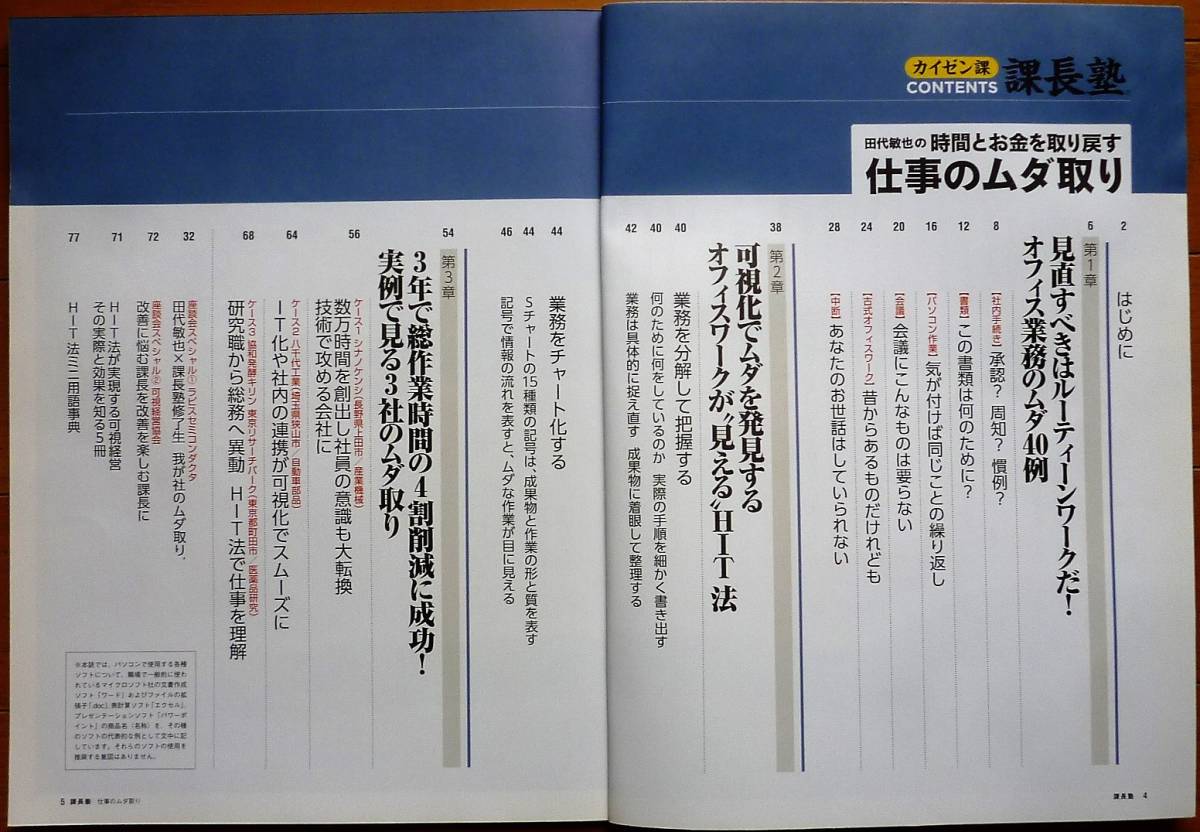 カイゼン課
CONTENTS
課長塾
田代敏也の 時間とお金を取り戻す
仕事のムダ取り
2
はじめに
6
第1章
見直すべきはルーティーンワークだ！
オフィス業務のムダ40例
8
【社内手続き】承認？ 周知？ 慣例？
12
【書類】この書類は何のために？
16
【パソコン作業】気が付けば同じことの繰り返し
20
【会議】会議にこんなものは要らない
24
【古式オフィスワーク】昔からあるものだけれども
28
【中断】あなたのお世話はしていられない
38
第2章
可視化でムダを発見する
オフィスワークが〝見える〟HIT法
40
業務を分解して把握する
40
何のために何をしているのか 実際の手順を細かく書き出す
42
業務は具体的に捉え直す 成果物に着眼して整理する
44
業務をチャート化する
44
Sチャートの15種類の記号は、成果物と作業の形と質を表す
46
記号で情報の流れを表すと、ムダな作業が目に見える
54
第3章
3年で総作業時間の4割削減に成功！
実例で見る3社のムダ取り
56
ケース1 シナノケンシ（長野県上田市／産業機械）
数万時間を創出し社員の意識も大転換
技術で攻める会社に
64
ケース2 八千代工業（埼玉県狭山市／自動車部品）
IT化や社内の連携が可視化でスムーズに
68
ケース3 協和発酵キリン 東京リサーチパーク（東京都町田市／医薬品研究）
研究職から総務へ異動 HIT法で仕事を理解
32
座談会スペシャル① ラピスセミコンダクタ
田代敏也×課長塾修了生 我が社のムダ取り。
72
座談会スペシャル② 可視経営協会
改善に悩む課長を改善を楽しむ課長に
71
HIT法が実現する可視経営
その実際と効果を知る5冊
77
HIT法ミニ用語事典
※本誌では、パソコンで使用する各種
ソフトについて、職場で一般的に使わ
れているマイクロソフト社の文書作成
ソフト「ワード」およびファイルの拡
張子「.doc」、表計算ソフト「エクセル」、
プレゼンテーションソフト「パワーポ
イント」の商品名（名称）を、その種
のソフトの代表的な例として文中に記
しています。それらのソフトの使用を
推奨する意図はありません。
5 課長塾 仕事のムダ取り
課長塾 4